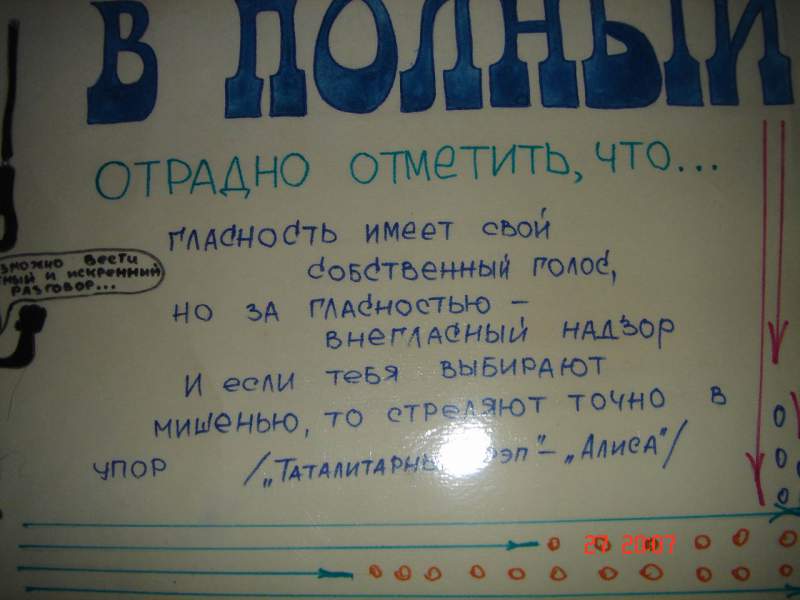 В ПОЛНЫЙ
ОТРАДНО ОТМЕТИТЬ, ЧТО...
ГЛАСНОСТЬ ИМЕЕТ СВОЙ
СОБСТВЕННЫЙ ГОЛОС,
НО ЗА ГЛАСНОСТЬЮ –
ВНЕГЛАСНЫЙ НАДЗОР
И ЕСЛИ ТЕБЯ ВЫБИРАЮТ
МИШЕНЬЮ, ТО СТРЕЛЯЮТ ТОЧНО В
УПОР /„ТАТАЛИТАРНЫ РЭП"– „АЛИСА"/
ВЕСТИ
И ИСКРЕННИЙ
РАЗГОВОР...